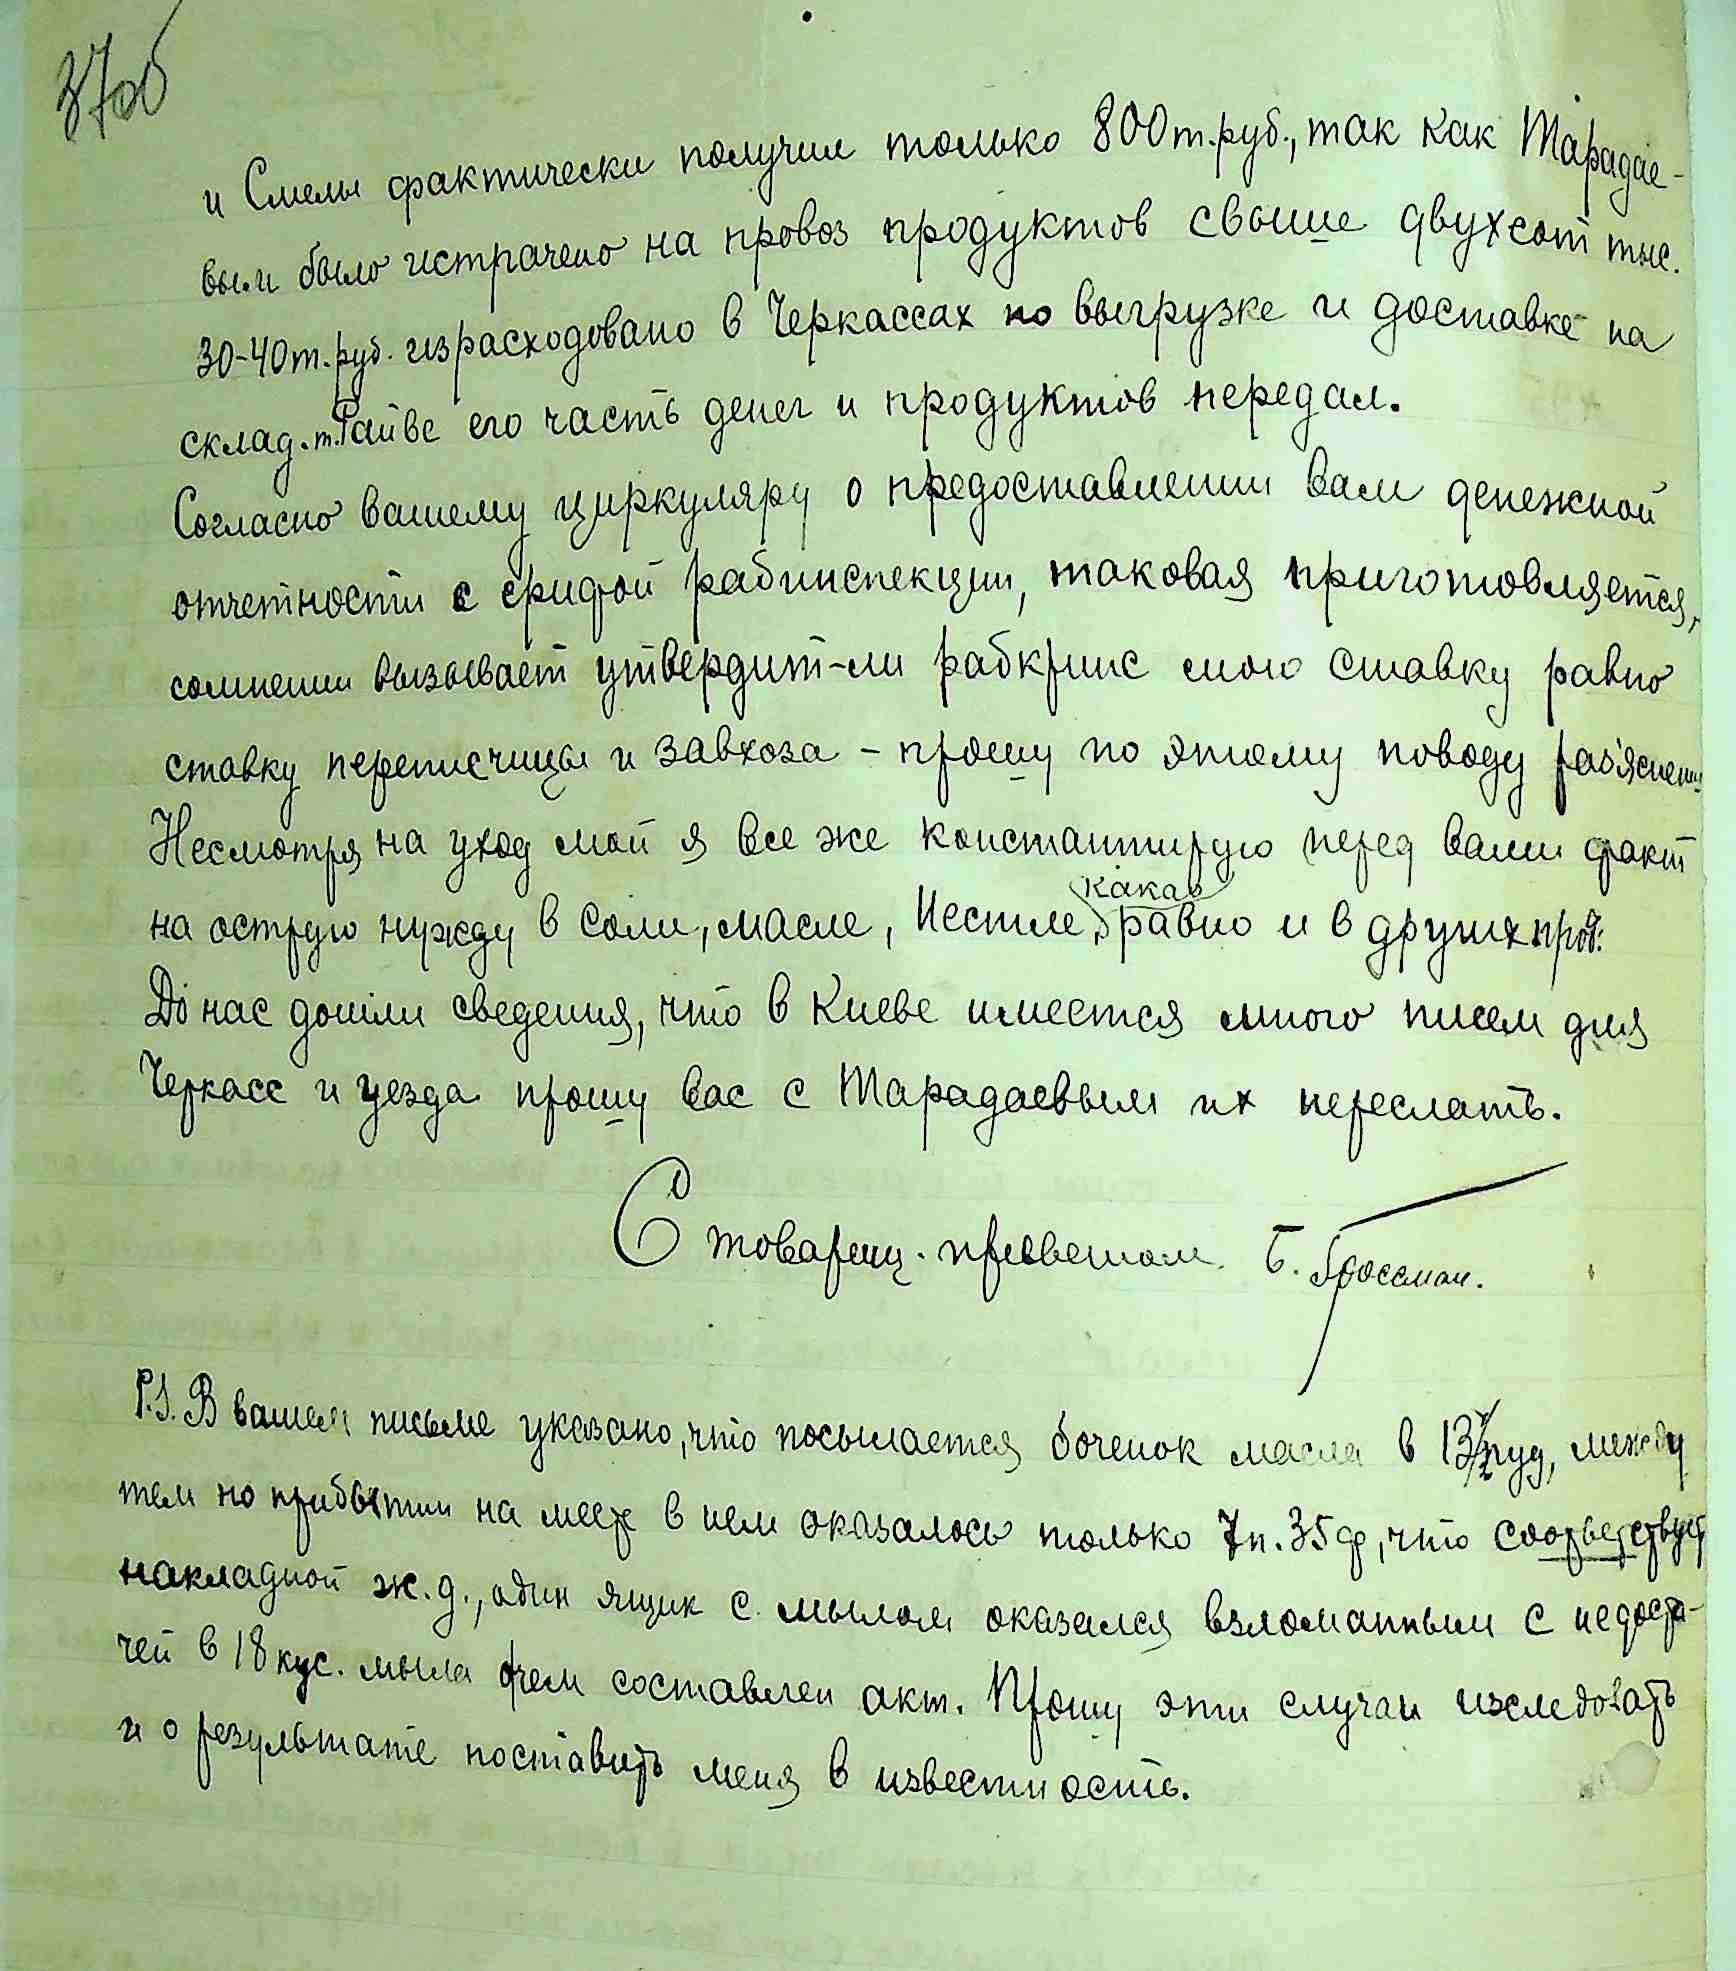 37об
и Смелы фактически получил только 800 т. руб., так как Тарадае-
вым было истрачено на провоз продуктов свыше двухсот тыс.
30-40 т. руб. израсходовано в Черкассах по выгрузке и доставке на
склад. т. Райве его часть денег и продуктов передал.
Согласно вашему циркуляру о предоставлении вам денежной
отчетности с грифой рабинспекции, таковая приготовляется,
сомнении вызывает утвердит-ли рабкринс мою ставку равно
ставку переписчицы и завхоза – прошу по этому поводу раз'яснении
Несмотря на уход мой я все же константирую перед вами факт
какао
на острую нужду в соли, масле, Нестле, равно и в других прод.
До нас дошли сведения, что в Киеве имеется много писем для
Черкасс и уезда прошу вас с Тарадаевым их переслать.
С товарищ. приветом Б. Гроссман.
P.S. В вашем письме указано, что посылается боченок масла в 13 1/2 пуд, между
тем по прибытии на место в нем оказалось только 7 п. 35 ф, что соответствует
накладной ж.д., один ящик с мылом оказался взломанным с недоста-
чей в 18 кус. мыла о чем составлен акт. Прошу эти случаи изследовать
и о результате поставить меня в известность.